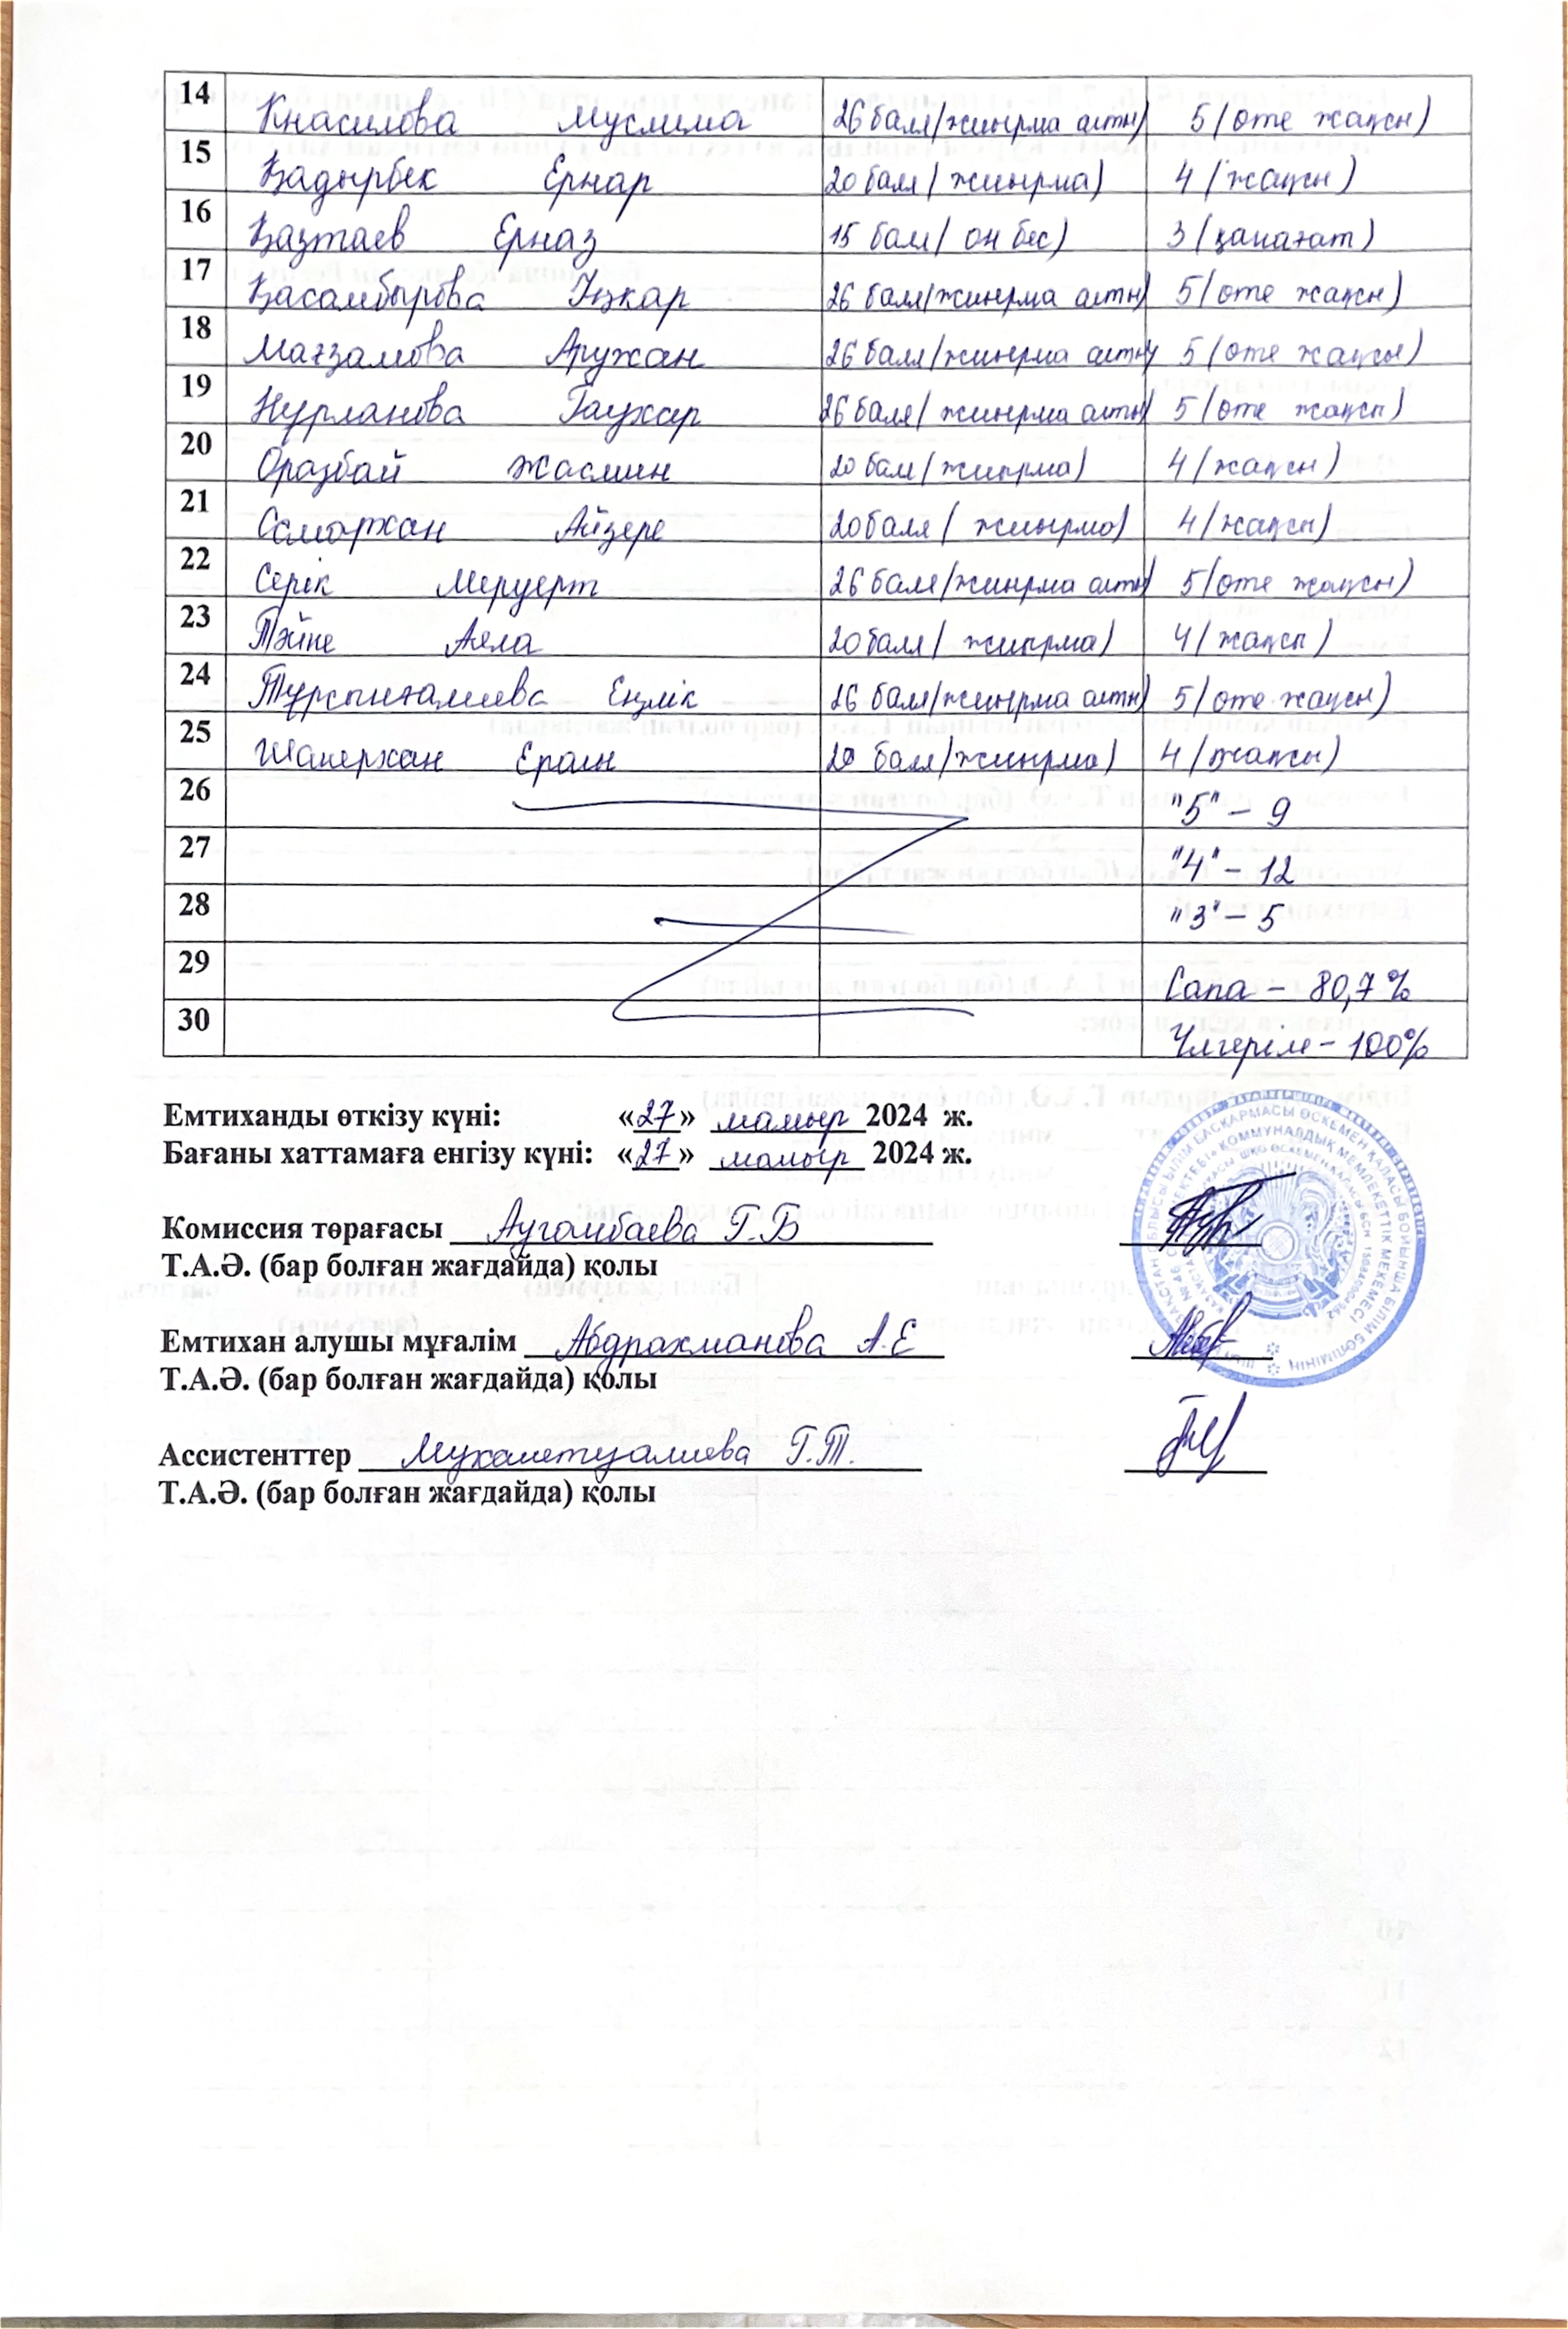 14 Кнасилова Муслима 26 балл/жиырма алты) 5 (өте жақсы)
15 Қадырбек Ернар 20 балл (жиырма) 4 (жақсы)
16 Қазтаев Ерназ 15 балл (он бес) 3 (қанағат)
17 Қасамбырова Іңкар 26 балл/жиырма алты) 5 (өте жақсы)
18 Мағзамова Аружан 26 балл/жиырма алты) 5 (өте жақсы)
19 Нурланова Гаухар 26 балл/ жиырма алты) 5 (өте жақсы)
20 Оразбай Жасмин 20 балл (жиырма) 4 (жақсы)
21 Самархан Айзере 20 балл ( жиырма) 4 (жақсы)
22 Серік Меруерт 26 балл/жиырма алты) 5 (өте жақсы)
23 Тәйпе Аяла 20 балл ( жиырма) 4 (жақсы)
24 Тұрсынғалиева Еңлік 26 балл/жиырма алты) 5 (өте жақсы)
25 Шакерхан Ералы 20 балл/жиырма) 4 (жақсы)
26 "5" – 9
27 "4" – 12
28 "3" – 5
29 Сапа – 80,7 %
30 Үлгерім – 100%
Емтиханды өткізу күні: «27» мамыр 2024 ж.
Бағаны хаттамаға енгізу күні: «27» мамыр 2024 ж.
Комиссия төрағасы Аугамбаева Г.Б
Т.А.Ә. (бар болған жағдайда) қолы
Емтихан алушы мұғалім Абдрахманова А.Е
Т.А.Ә. (бар болған жағдайда) қолы
Ассистенттер Мухаметуалиева Г.Т.
Т.А.Ә. (бар болған жағдайда) қолы